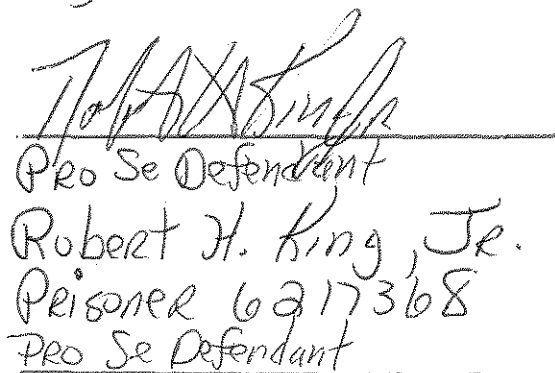 Robert H King Jr
Pro Se Defendant
Robert H. King, Jr.
Prisoner 6217368
Pro Se Defendant